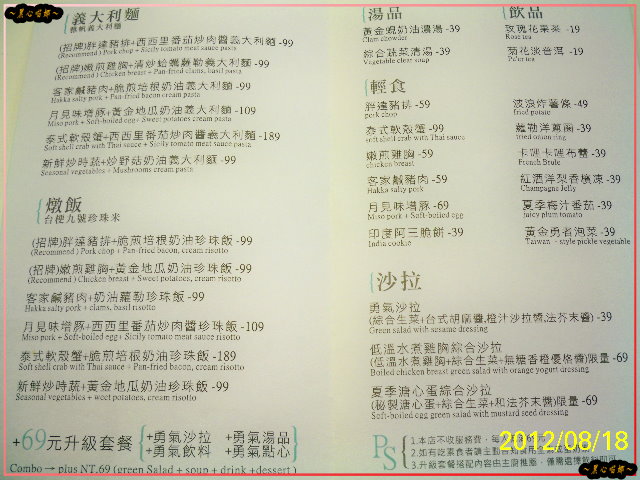 義大利麵
(招牌)胖達豬排+西西里番茄炒肉醬義大利麵-99
(Recommend) Pork chop + Sicily tomato meat sauce pasta
(招牌)嫩煎雞胸+清炒蛤蠣蘿勒義大利麵-99
(Recommend) Chicken breast + Pan-fried clams, basil pasta
客家鹹豬肉+脆煎培根奶油義大利麵-99
Hakka salty pork + Pan-fried bacon cream pasta
月見味增豚+黃金地瓜奶油義大利麵-109
Miso pork + Soft-boiled egg+ Sweet potatoes cream pasta
泰式軟殼蟹+西西里番茄炒肉醬義大利麵-189
Soft shell crab with Thai sauce + Sicily tomato meat sauce pasta
新鮮炒時蔬+炒野菇奶油義大利麵-99
Seasonal vegetables + Mushrooms cream pasta
燉飯
台梗九號珍珠米
(招牌)胖達豬排+脆煎培根奶油珍珠飯-99
(Recommend) Pork chop + Pan-fried bacon, cream risotto
(招牌)嫩煎雞胸+黃金地瓜奶油珍珠飯-99
(Recommend) Chicken breast + Sweet potatoes, cream risotto
客家鹹豬肉+奶油蘿勒珍珠飯-99
Hakka salty pork + clams, basil risotto
月見味增豚+西西里番茄炒肉醬珍珠飯-109
Miso pork + Soft-boiled egg + Sicily tomato meat sauce risotto
泰式軟殼蟹+脆煎培根奶油珍珠飯-189
Soft shell crab with Thai sauce + Pan-fried bacon, cream risotto
新鮮炒時蔬+黃金地瓜奶油珍珠飯-99
Seasonal vegetables + weet potatoes, cream risotto
+69元升級套餐
+勇氣沙拉 +勇氣湯品
+勇氣飲料 +勇氣點心
Combo → plus NT.69 (green Salad + soup + drink +dessert )
湯品
黃金蜆奶油濃湯-39
Clam chowder
綜合蔬菜清湯-39
Vegetable clear soup
飲品
玫瑰花果茶-19
Rose tea
菊花淡普洱-19
Pu'er tea
輕食
胖達豬排-59
pork chop
泰式軟殼蟹-99
soft shell crab with Thai sauce
嫩煎雞胸-59
chicken breast
客家鹹豬肉-59
Hakka salty pork
月見味增豚-69
Miso pork + Soft-boiled egg
印度阿三脆餅-39
India cookie
波浪炸薯條-49
fried potate
蘿勒洋蔥圈-39
fried onion ring
卡哩卡哩布蕾-39
French Brule
紅酒洋梨香檳凍-39
Champagne Jelly
夏季梅汁番茄-39
juicy plum tomato
黃金勇者泡菜-39
Taiwan - style pickle vegetable
沙拉
勇氣沙拉
(綜合生菜+台式胡麻醬,橙汁沙拉醬,法芥末醬)-39
Green salad with sesame dressing
低溫水煮雞胸綜合沙拉
(低溫水煮雞胸+綜合生菜+無糖香橙優格醬)限量-69
Boiled chicken breast green salad with orange yogurt dressing
夏季溏心蛋綜合沙拉
(秘製溏心蛋+綜合生菜+和法芥末醬)限量-69
Soft-boiled egg green salad with mustard seed dressing
PS
1.本店不收服務費，每
2.如有吃素食者請主動告知
3.升級套餐搭配內容由主廚推薦，僅需選擇飲料即可
2012/08/18